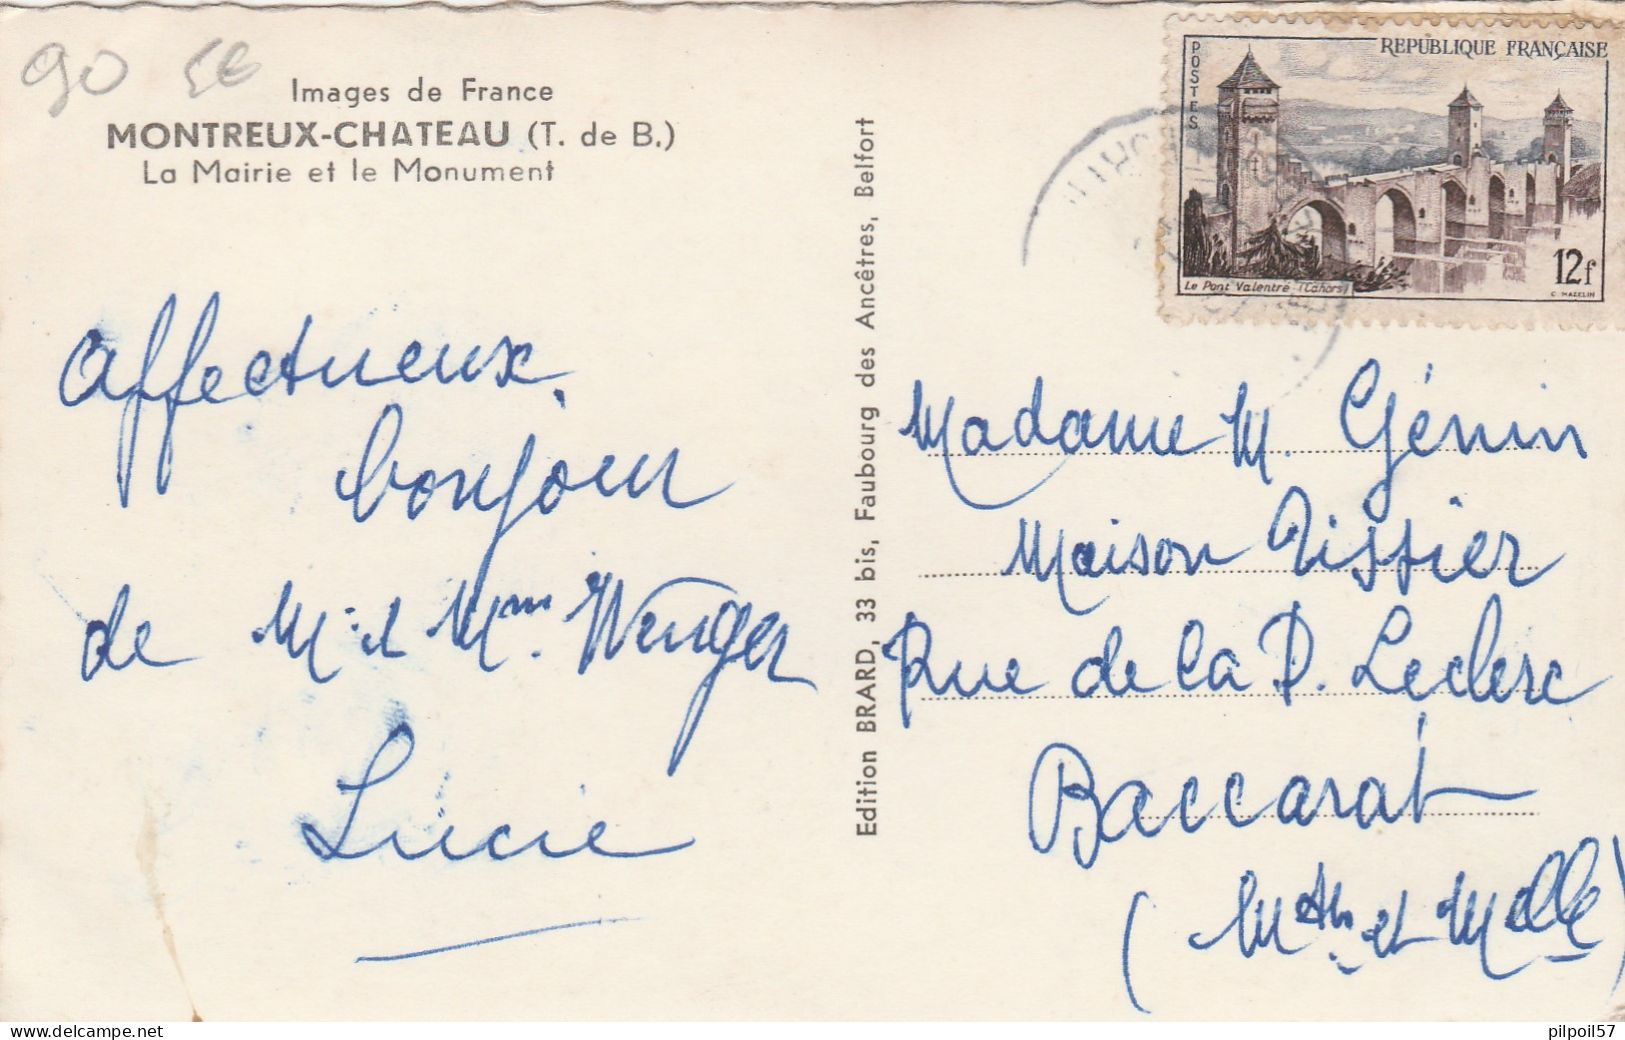 90 5€
Images de France
MONTREUX-CHATEAU (T. de B.)
La Mairie et le Monument
Affectueux
bonjour
de M. et Mme. Wenger
Lucie
Edition BRARD, 33 bis, Faubourg des Ancêtres, Belfort
POSTES
REPUBLIQUE FRANÇAISE
12f
Le Pont Valentré (Cahors)
C. MAZELIN
Madame M. Génin
Maison Tissier
Rue de la D. Leclerc
Baccarat
(Mthe et Mselle)
pilpoil57
www.delcampe.net